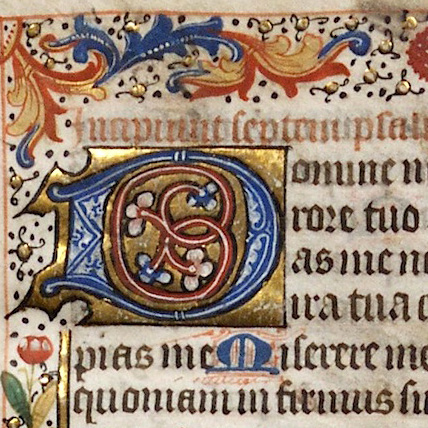 Incipiunt septem psal
Domine n
rore tuo
as me ne
ira tua c
pias me Miserere me
quoniam infirmus su